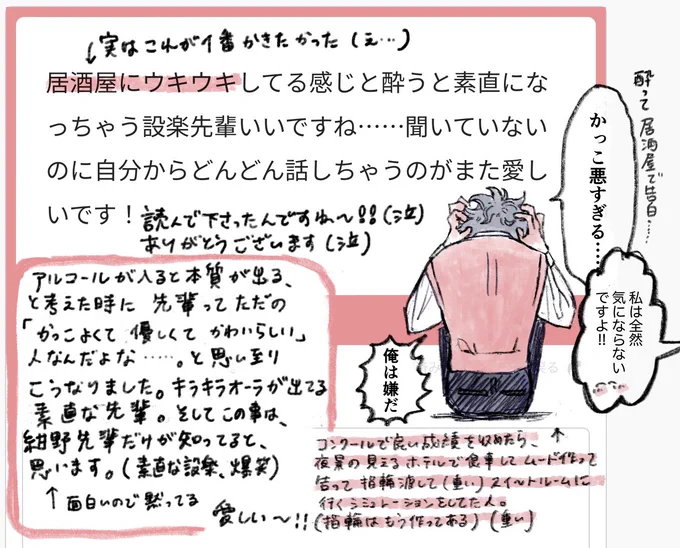 ↓実はこれが1番かきたかった(え…)
居酒屋にウキウキしてる感じと酔うと素直にな
っちゃう設楽先輩いいですね……聞いていない
のに自分からどんどん話しちゃうのがまた愛し
いです！
読んで下さったんですね〜!!(泣)
ありがとうございます(泣)
酔って居酒屋で告白……
かっこ悪すぎる……
私は全然
気にならない
ですよ!!
俺は嫌だ
アルコールが入ると本質が出る、
と考えた時に 先輩ってただの
「かっこよくて 優しくて かわいらしい」
人なんだよな……。と思い至り
こうなりました。キラキラオーラが出てる
素直な先輩。そしてこの事は、
紺野先輩だけが知ってると、
思います。(素直な設楽、爆笑)
↑面白いので黙ってる
愛しい〜!!
コンクールで良い成績を収めたら、↑
夜景の見えるホテルで食事してムード作って
告って指輪渡して(重い)スイートルームに
行くシミュレーションをしてた人。
(指輪はもう作ってある)(重い)